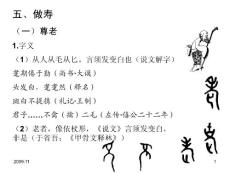 五、做寿
（一）尊老
1.字义
（1）从人从毛从匕，言须发变白也（说文解字）
耄期倦于勤（尚书·大谟）
头发白，耄耄然（释名）
斑白不提携（礼记·王制）
君子……不禽（擒）二毛（左传·僖公二十二年）
（2）老者，像依杖形，《说文》言须发变白，
非是（于省吾：《甲骨文释林》）
2009-11
1